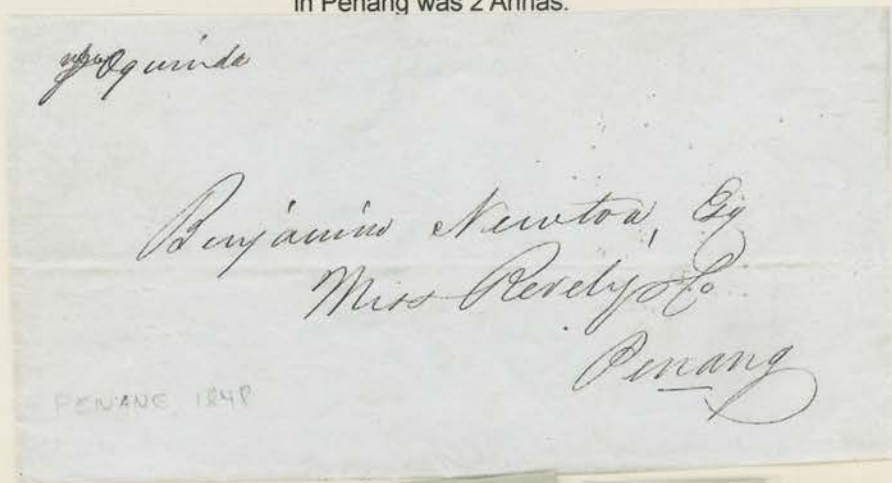 in Penang was 2 Annas.
Oquinda
Benjamin Newton, Esq
Mess Revely & Co
Penang
PENANG 1848